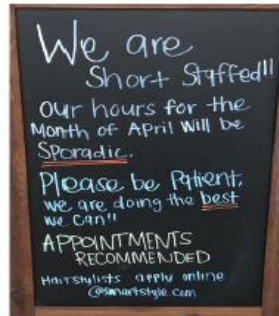 We are
Short Staffed!!
Our hours for the
Month of April Will be
Sporadic.
Please be Patient,
we are doing the best
we can!!
APPOINTMENTS
RECOMMENDED
Hairstylists apply online
@smartstyle.com